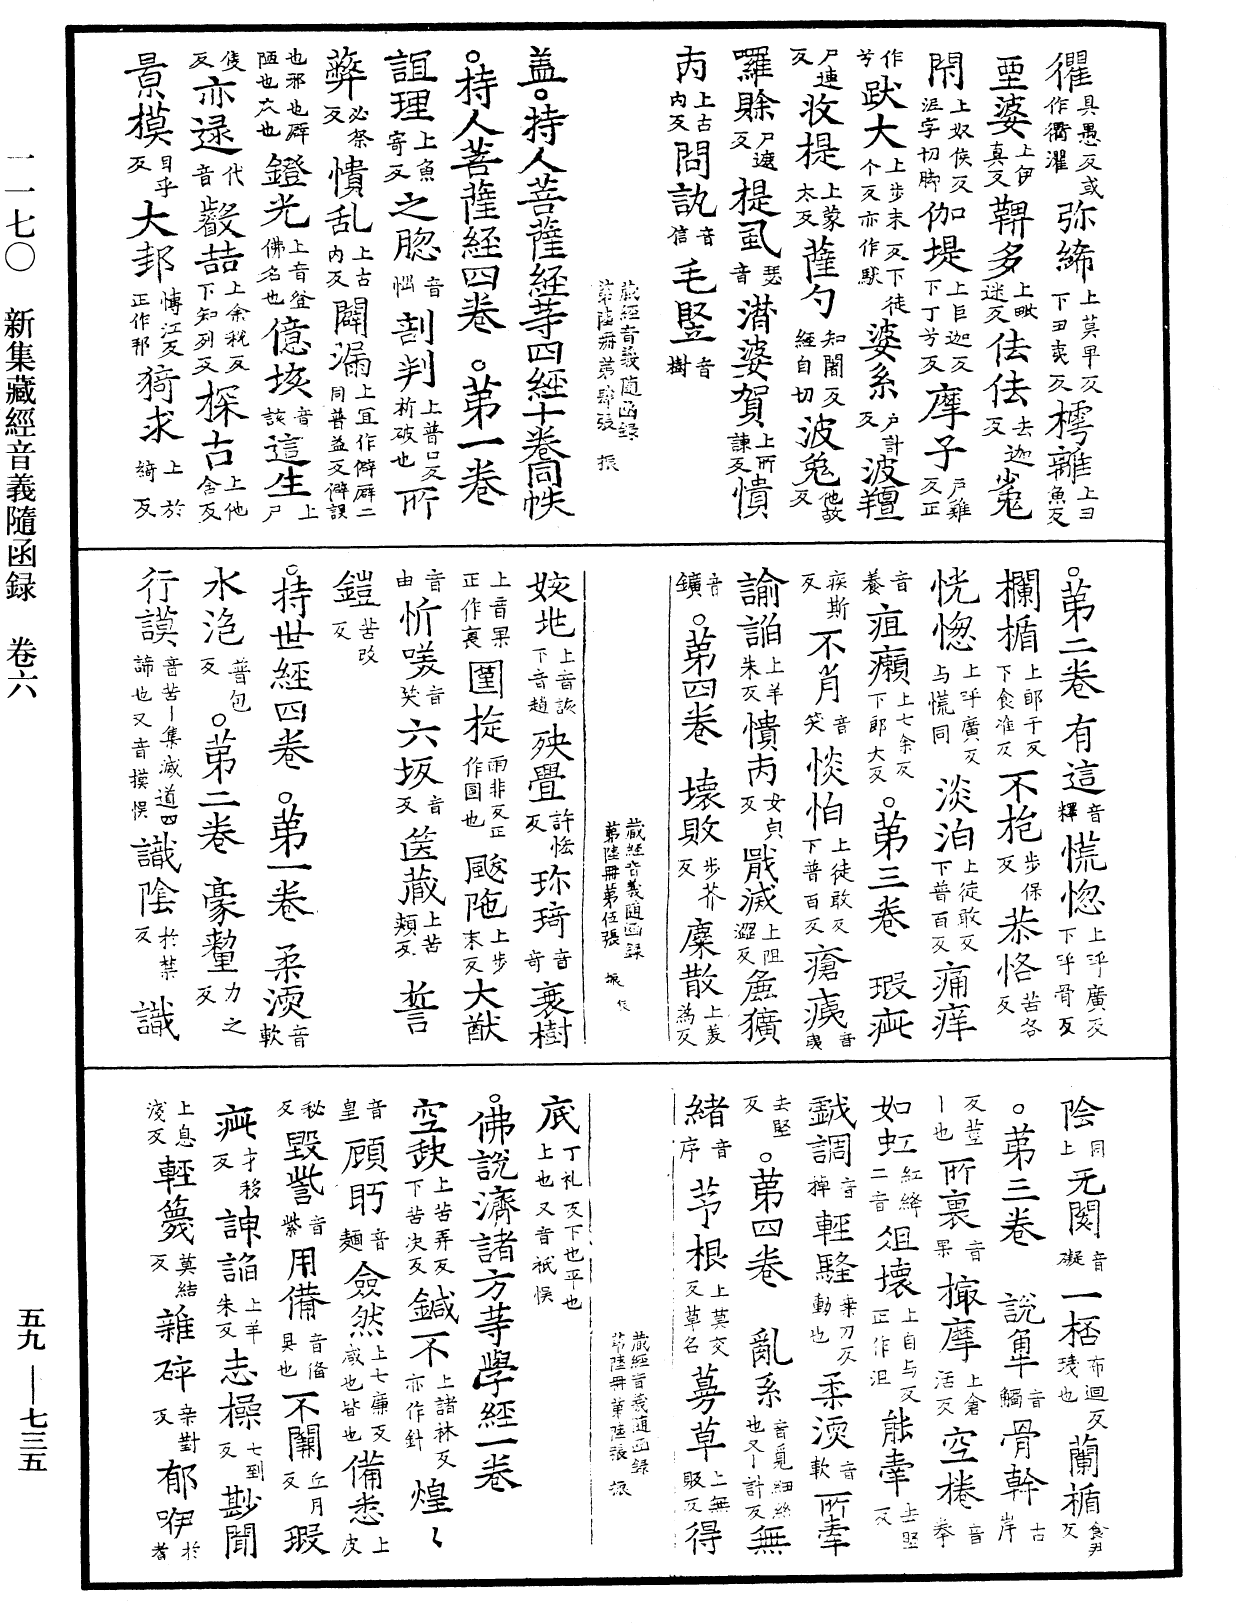 一一七〇　新集藏經音義隨函録　卷六
五九——七三五
忂具愚反或作衢濯弥締上莫早反下田奚反樗離上ヨ魚反
垔婆上伊真反鞞多上毗迷反佉佉去迦反嵬
閇上奴侯反泥字切脚伽堤上巨迦反下丁兮反摩子戶雞反正作兮
趺大上步末反下徒个反亦作馱婆系戶計反波羶尸連反
收提上蒙太反薩勺知闇反經自切波兔他故反
囉賖尸遮反提虱瑟音潜婆賀上所諫反憒
丙上古内反問訙音信毛竪音樹
藏經音義随函録
第陸冊第肆張　振
盖。持人菩薩經等四經十卷同帙
。持人菩薩經四卷　。第一卷
誼理上魚寄反之䐉音惱剖判上普口反析破也所
弊必祭反憒乱上古内反闢漏上宜作僻辟二同普益反僻誤也邪也辟陋也亦也
鐙光上音登佛名也億垓音該這生上尸隻反
亦逯代音叡喆上余稅反下知列反探古上他含反
景摸目乎反大邦博江反正作邦猗求上於綺反
。第二卷　有這音釋慌惚上呼廣反下呼骨反
欄楯上郎干反下食准反不抱步保反恭恪苦各反
恍惚上呼廣反与慌同淡泊上徒敢反下普百反痛痒音養
疽癩上七余反下郎大反。第三卷　瑕疵疾斯反
不肖音笑惔怕上徒敢反下普百反瘡痍音夷
諭諂上羊朱反憒丙女皃反戢滅上阻澀反麁獷音鑛
。第四卷　壞敗步芥反麋散上美為反
藏經音義随函録
第陸冊第伍張　振
姟兆上音該下音趙殃舋許恡反琦琦音奇裹樹上音果正作裹
圍㨀雨非反正作圍也颰陁上步末反大猷音由
忻㗛音笑六坂音反箧蔵上苦頰反誓
鎧苦改反
。持世經四卷　。第一卷　柔渜音軟
水泡普包反。第二卷　豪氂力之反
行謨音苦丨集滅道四諦也又音摸悮識陰於禁反識
陰同上无閡音礙一桮布迴反琖也蘭楯食尹反
。第三卷　說觕音觸骨幹古岸反莖丨也
所裹音果撮摩上倉活反空棬音拳
如虹紅絳二音俎壞上自与反正作沮能牽去堅反
戱調音掉輕騷桒刀反動也柔渜音軟所牽去堅反
。第四卷　亂系音覓細絲也又丨計反無
緒音序茅根上莫交反草名募草上無販反得
藏經音義随函録
第陸冊第陸張　振
底丁礼反下也平也上也又音祇悮
。佛說濟諸方等學經一卷
空缺上苦弄反下苦决反鍼不上諸林反亦作針煌〻音皇
顧眄音麺僉然上七廉反咸也皆也備悉上皮秘反
毀訾音紫用備音俻具也不闕丘月反瑕
疵才移反諛諂上羊朱反志操七到反尠聞上息淺反
輕篾莫結反雜碎桒對反郁咿於耆